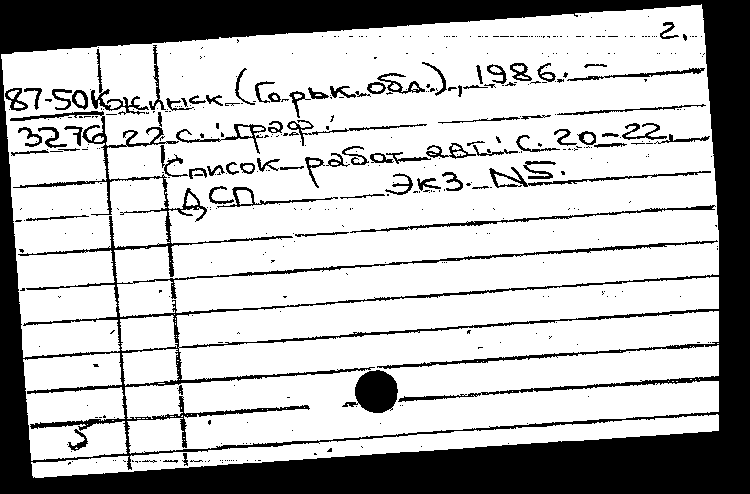 2.
87-50кжинск (Горьк. обл.), 1986. –
3276 22 с. : граф.
Список работ авт.: с. 20-22.
ДСП Экз. N5.
5